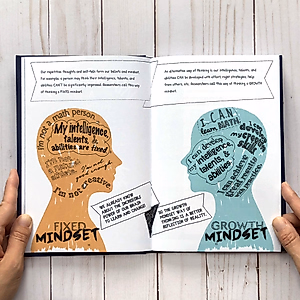 Our repetitive thoughts and self-talk form our beliefs and mindset.
For example, a person may think their intelligence, talents, and abilities CAN'T be significantly improved. Researchers call this way of thinking a FIXED mindset.
I'm not a math person...
My intelligence,
talents, &
abilities are fixed
I'm not creative
FIXED
MINDSET
WE ALREADY KNOW
ABOUT THE INCREDIBLE
POWER OF OUR BRAINS
TO LEARN AND CHANGE!
An alternative way of thinking is our intelligence, talents, and
abilities CAN be developed with effort, right strategies, help
from others, etc. Researchers call this way of thinking a GROWTH
mindset.
I CAN
learn MATH!
I can develop
my intelligence,
talents, &
abilities
SO THE GROWTH
MINDSET WAY OF
THINKING IS A BETTER
REFLECTION OF REALITY.
GROWTH
MINDSET